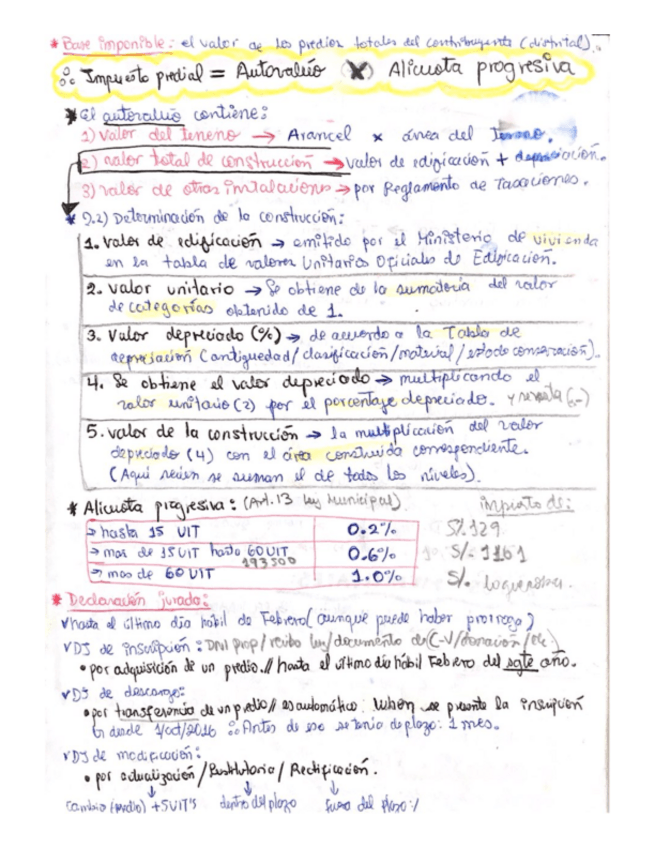 * Base imponible: el valor de los predios totales del contribuyente (distrital).
∴ Impuesto predial = Autovalúo (X) Alicuota progresiva
* El autovalúo contiene:
1) valor del terreno → Arancel x área del terreno.
2) valor total de construcción → valor de edificación + depreciación.
3) valor de otras instalaciones → por Reglamento de Tasaciones.
* 2.2) Determinación de la construcción:
1. Valor de edificación → emitido por el Ministerio de vivienda
en la tabla de valores Unitarios Oficiales de Edificación.
2. valor unitario → Se obtiene de la sumatoria del valor
de categorías obtenido de 1.
3. Valor depreciado (%) → de acuerdo a la Tabla de
depreciación (antiguedad/clasificación/material/estado conservación).
4. Se obtiene el valor depreciado → multiplicando el
valor unitario (2) por el porcentaje depreciado. y resta (-)
5. valor de la construcción → la multiplicación del valor
depreciado (4) con el área construida correspondiente.
(Aquí recien se suman el de todos los niveles).
* Alicuota progresiva: (Art. 13 ley Municipal) impuesto de:
→ hasta 15 UIT 0.2% S/. 129
→ mas de 15 UIT hasta 60 UIT 0.6% S/. 1161
193500
→ mas de 60 UIT 1.0% S/. lo que resulta.
* Declaración jurada:
√ hasta el último día hábil de Febrero (aunque puede haber prorroga)
√ DJ de inscripción: DNI prop/recibo luz/documento de (C-V/donación/etc)
• por adquisición de un predio // hasta el último día hábil Febrero del sgte año.
√ DJ de descargo:
• por transferencia de un predio // es automático: When se presente la inscripción
↳ desde 1/oct/2016 ∴ Antes de eso se tenía de plazo: 1 mes.
√ DJ de modificación:
• por actualización / Sustitutoria / Rectificación.
↓ ↓ ↓
cambio (predio) + 5UIT's dentro del plazo fuera del plazo :/